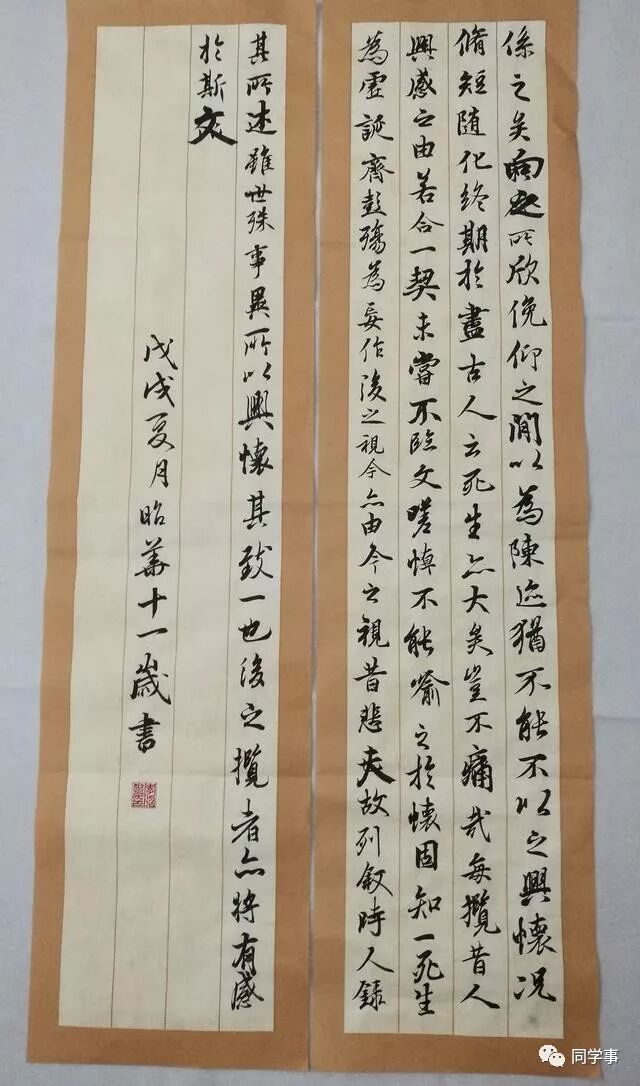 係之矣向之所欣俛仰之間以為陳迹猶不能不以之興懷況
脩短隨化終期於盡古人云死生亦大矣豈不痛哉每攬昔人
興感之由若合一契未嘗不臨文嗟悼不能喻之於懷固知一死生
為虛誕齊彭殤為妄作後之視今亦由今之視昔悲夫故列敘時人錄
其所述雖世殊事異所以興懷其致一也後之攬者亦將有感
於斯文
戊戌夏月昭華十一歲書
同学事